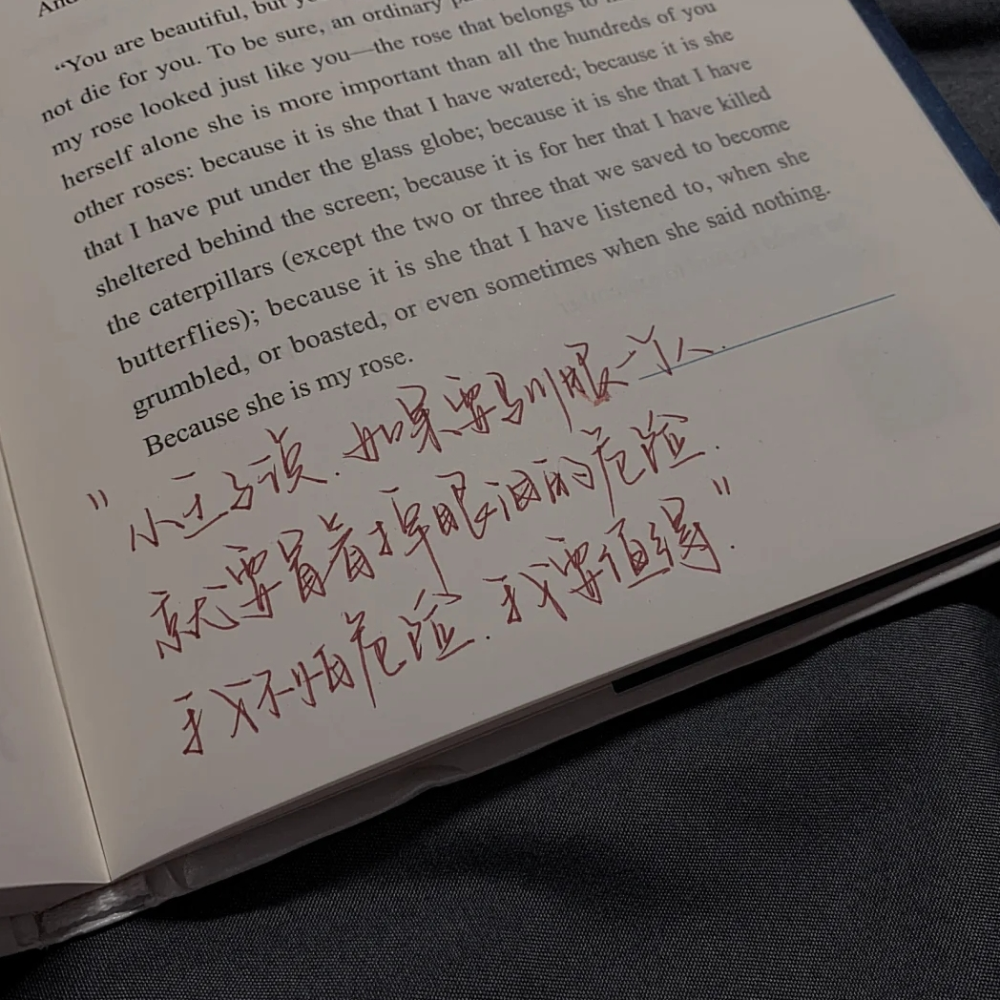 “You are beautiful, but
not die for you. To be sure, an ordinary
my rose looked just like you—the rose that belongs to
herself alone she is more important than all the hundreds of you
other roses: because it is she that I have watered; because it is she
that I have put under the glass globe; because it is she that I have
sheltered behind the screen; because it is for her that I have killed
the caterpillars (except the two or three that we saved to become
butterflies); because it is she that I have listened to, when she
grumbled, or boasted, or even sometimes when she said nothing.
Because she is my rose.
"小王子说.如果要驯服一个人.
就要冒着掉眼泪的危险.
我不怕危险.我要值得".